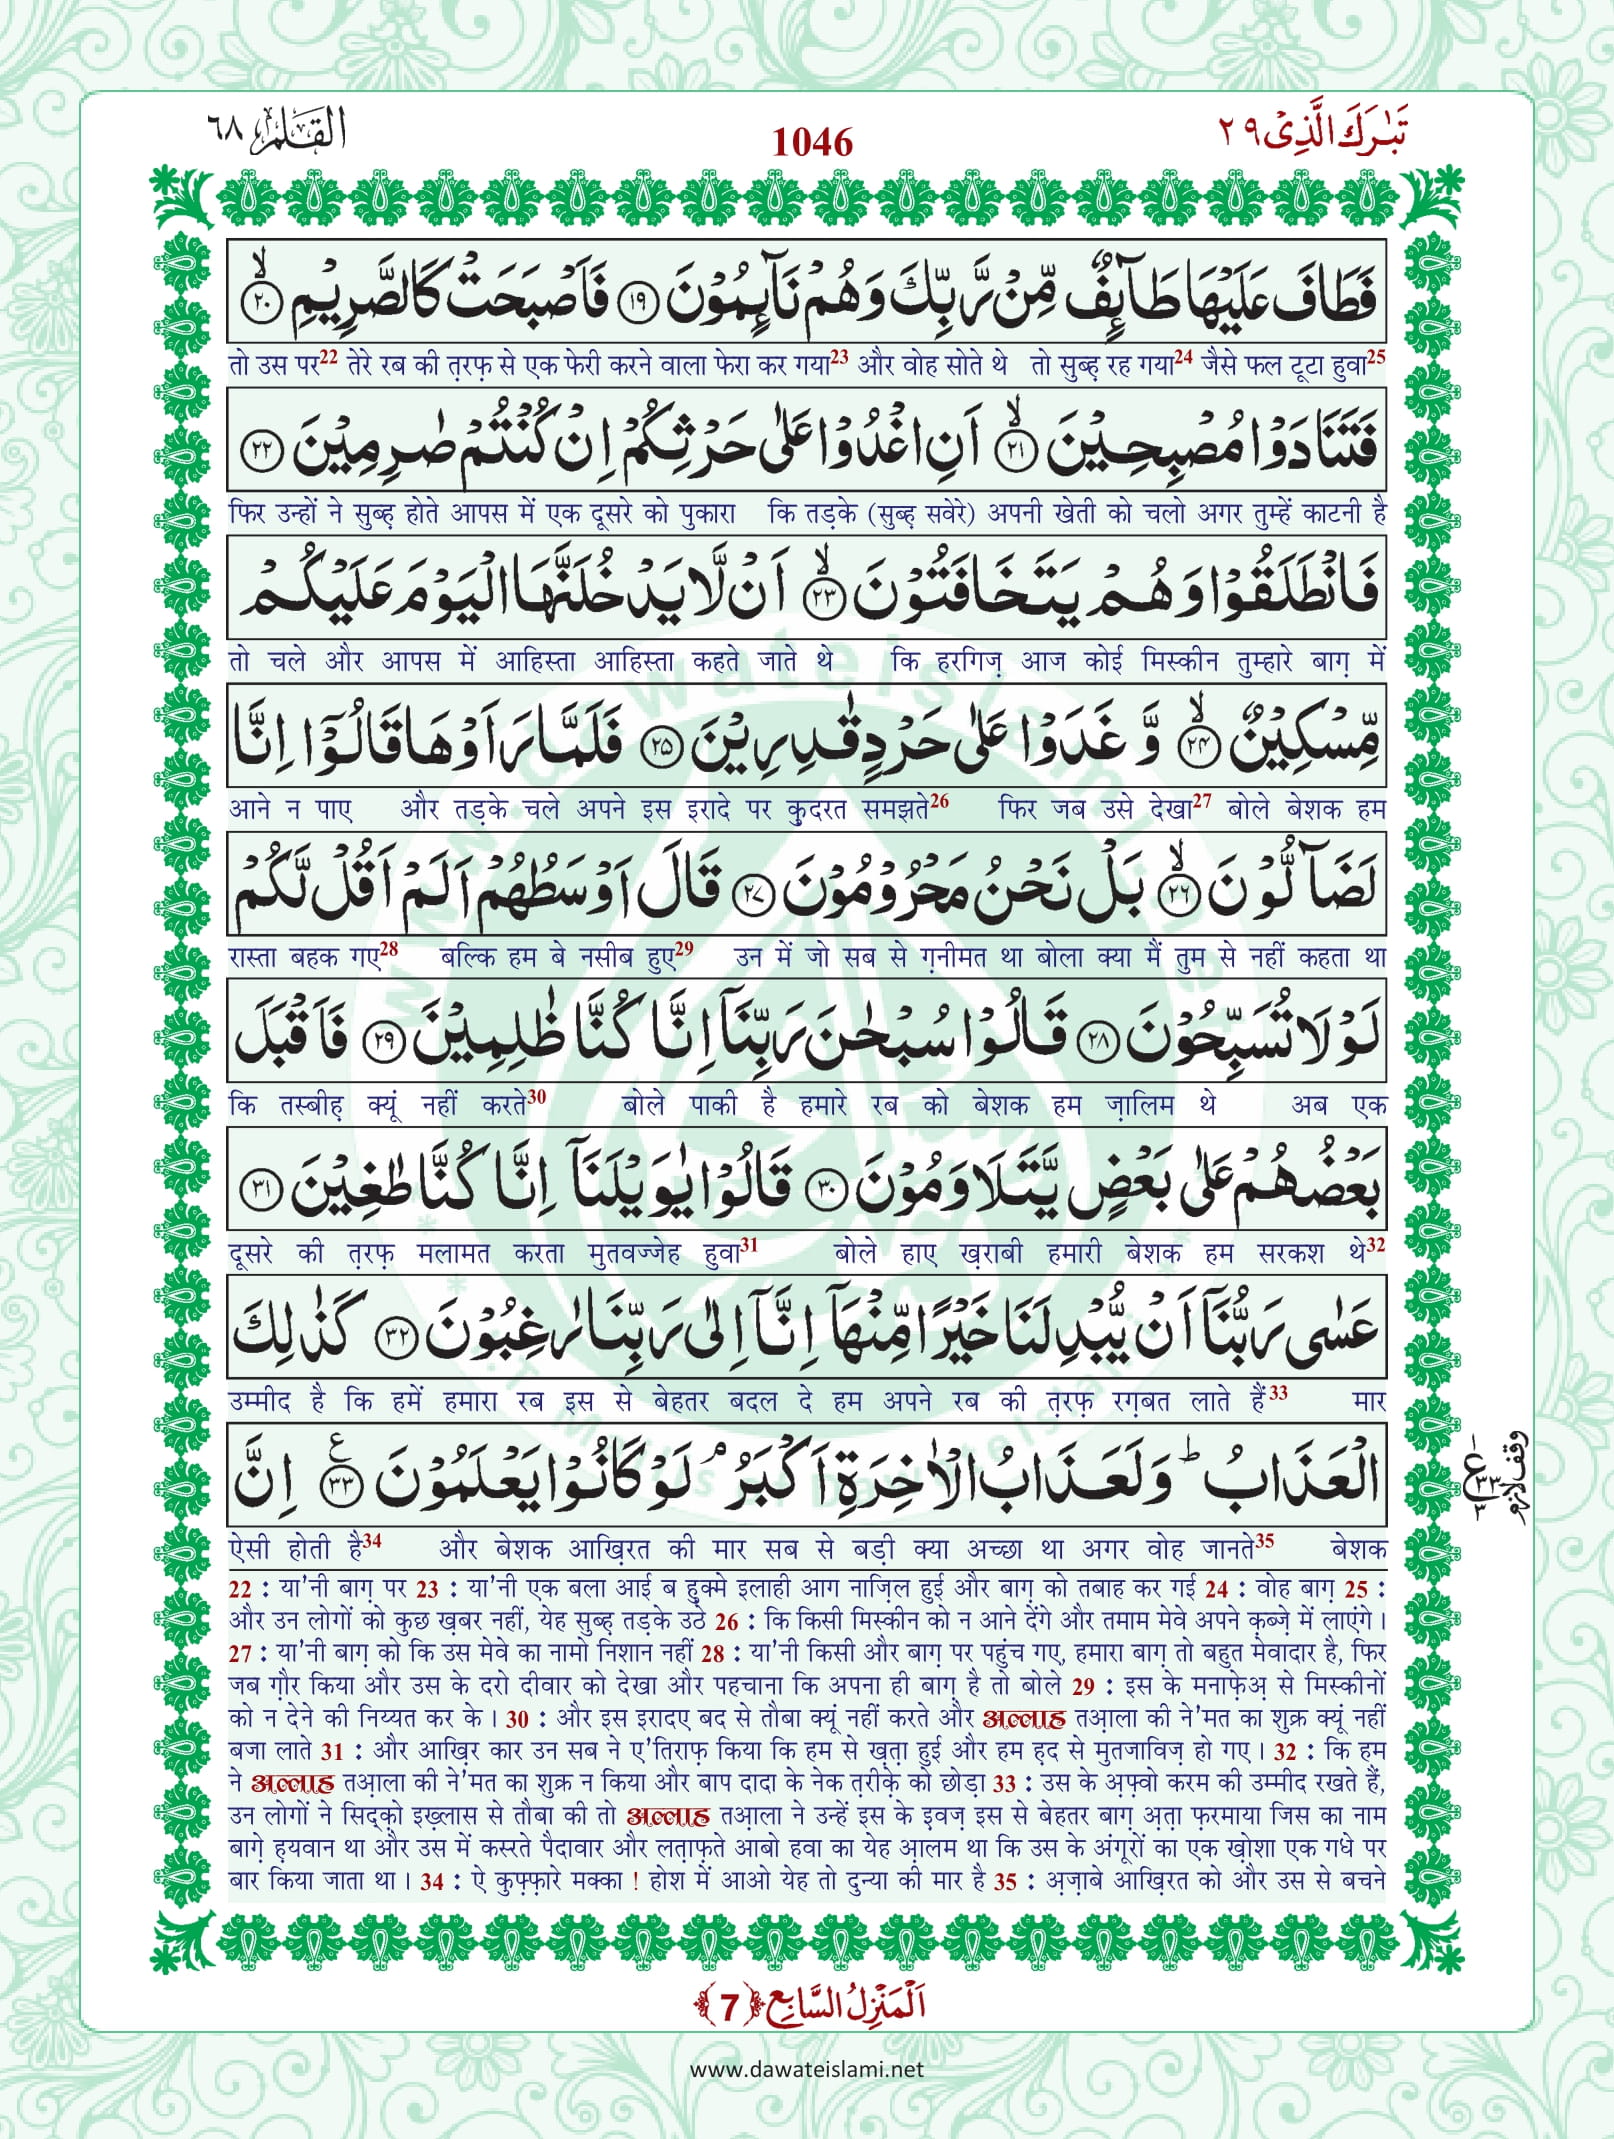 القلم ٦٨
1046
تَبٰرَكَ الَّذِیْ ٢٩
فَطَافَ عَلَیْهَا طَآىٕفٌ مِّنْ رَّبِّكَ وَ هُمْ نَآىٕمُوْنَ ﴿١٩﴾ فَاَصْبَحَتْ كَالصَّرِیْمِۙ ﴿٢٠﴾
तो उस पर22 तेरे रब की त़रफ़ से एक फेरी करने वाला फेरा कर गया23 और वोह सोते थे तो सुब्ह़ रह गया24 जैसे फल टूटा हुवा25
فَتَنَادَوْا مُصْبِحِیْنَۙ ﴿٢١﴾ اَنِ اغْدُوْا عَلٰى حَرْثِكُمْ اِنْ كُنْتُمْ صٰرِمِیْنَ ﴿٢٢﴾
फिर उन्हों ने सुब्ह़ होते आपस में एक दूसरे को पुकारा कि तड़के (सुब्ह़ सवेरे) अपनी खेती को चलो अगर तुम्हें काटनी है
فَانْطَلَقُوْا وَ هُمْ یَتَخَافَتُوْنَۙ ﴿٢٣﴾ اَنْ لَّا یَدْخُلَنَّهَا الْیَوْمَ عَلَیْكُمْ
तो चले और आपस में आहिस्ता आहिस्ता कहते जाते थे कि हरगिज़ आज कोई मिस्कीन तुम्हारे बाग़ में
مِّسْكِیْنٌۙ ﴿٢٤﴾ وَّ غَدَوْا عَلٰى حَرْدٍ قٰدِرِیْنَ ﴿٢٥﴾ فَلَمَّا رَاَوْهَا قَالُوْۤا اِنَّا
आने न पाए और तड़के चले अपने इस इरादे पर कु़दरत समझते26 फिर जब उसे देखा27 बोले बेशक हम
لَضَآلُّوْنَۙ ﴿٢٦﴾ بَلْ نَحْنُ مَحْرُوْمُوْنَ ﴿٢٧﴾ قَالَ اَوْسَطُهُمْ اَلَمْ اَقُلْ لَّكُمْ
रास्ता बहक गए28 बल्कि हम बे नसीब हुए29 उन में जो सब से ग़नीमत था बोला क्या मैं तुम से नहीं कहता था
لَوْ لَا تُسَبِّحُوْنَ ﴿٢٨﴾ قَالُوْا سُبْحٰنَ رَبِّنَاۤ اِنَّا كُنَّا ظٰلِمِیْنَ ﴿٢٩﴾ فَاَقْبَلَ
कि तस्बीह़ क्यूं नहीं करते30 बोले पाकी है हमारे रब को बेशक हम ज़ालिम थे अब एक
بَعْضُهُمْ عَلٰى بَعْضٍ یَّتَلَاوَمُوْنَ ﴿٣٠﴾ قَالُوْا یٰوَیْلَنَاۤ اِنَّا كُنَّا طٰغِیْنَ ﴿٣١﴾
दूसरे की त़रफ़ मलामत करता मुतवज्जेह हुवा31 बोले हाए ख़राबी हमारी बेशक हम सरकश थे32
عَسٰى رَبُّنَاۤ اَنْ یُّبْدِلَنَا خَیْرًا مِّنْهَاۤ اِنَّاۤ اِلٰى رَبِّنَا رٰغِبُوْنَ ﴿٣٢﴾ كَذٰلِكَ
उम्मीद है कि हमें हमारा रब इस से बेहतर बदल दे हम अपने रब की त़रफ़ रग़बत लाते हैं33 मार
الْعَذَابُؕ وَ لَعَذَابُ الْاٰخِرَةِ اَكْبَرُۘ لَوْ كَانُوْا یَعْلَمُوْنَ ﴿٣٣﴾ اِنَّ
ऐसी होती है34 और बेशक आख़िरत की मार सब से बड़ी क्या अच्छा था अगर वोह जानते35 बेशक
وقف لازم
22 : या'नी बाग़ पर 23 : या'नी एक बला आई ब हुक्मे इलाही आग नाज़िल हुई और बाग़ को तबाह कर गई 24 : वोह बाग़ 25 :
और उन लोगों को कुछ ख़बर नहीं, येह सुब्ह़ तड़के उठे 26 : कि किसी मिस्कीन को न आने देंगे और तमाम मेवे अपने क़ब्ज़े में लाएंगे।
27 : या'नी बाग़ को कि उस मेवे का नामो निशान नहीं 28 : या'नी किसी और बाग़ पर पहुंच गए, हमारा बाग़ तो बहुत मेवादार है, फिर
जब ग़ौर किया और उस के दरो दीवार को देखा और पहचाना कि अपना ही बाग़ है तो बोले 29 : इस के मनाफ़ेअ़ से मिस्कीनों
को न देने की निय्यत कर के। 30 : और इस इरादए बद से तौबा क्यूं नहीं करते और अल्लाह तआ़ला की ने'मत का शुक्र क्यूं नहीं
बजा लाते 31 : और आख़िर कार उन सब ने ए'तिराफ़ किया कि हम से ख़त़ा हुई और हम ह़द से मुतजाविज़ हो गए। 32 : कि हम
ने अल्लाह तआ़ला की ने'मत का शुक्र न किया और बाप दादा के नेक त़रीक़े को छोड़ा 33 : उस के अ़फ़्वो करम की उम्मीद रखते हैं,
उन लोगों ने सिद्को़ इख़्लास से तौबा की तो अल्लाह तआ़ला ने उन्हें इस के इवज़ इस से बेहतर बाग़ अ़त़ा फ़रमाया जिस का नाम
बाग़े ह़यवान था और उस में कस्रते पैदावार और लत़ाफ़ते आबो हवा का येह आ़लम था कि उस के अंगूरों का एक ख़ोशा एक गधे पर
बार किया जाता था। 34 : ऐ कुफ़्फ़ारे मक्का ! होश में आओ येह तो दुन्या की मार है 35 : अ़ज़ाबे आख़िरत को और उस से बचने
اَلْمَنْزِلُ السَّابِع ﴿7﴾
www.dawateislami.net